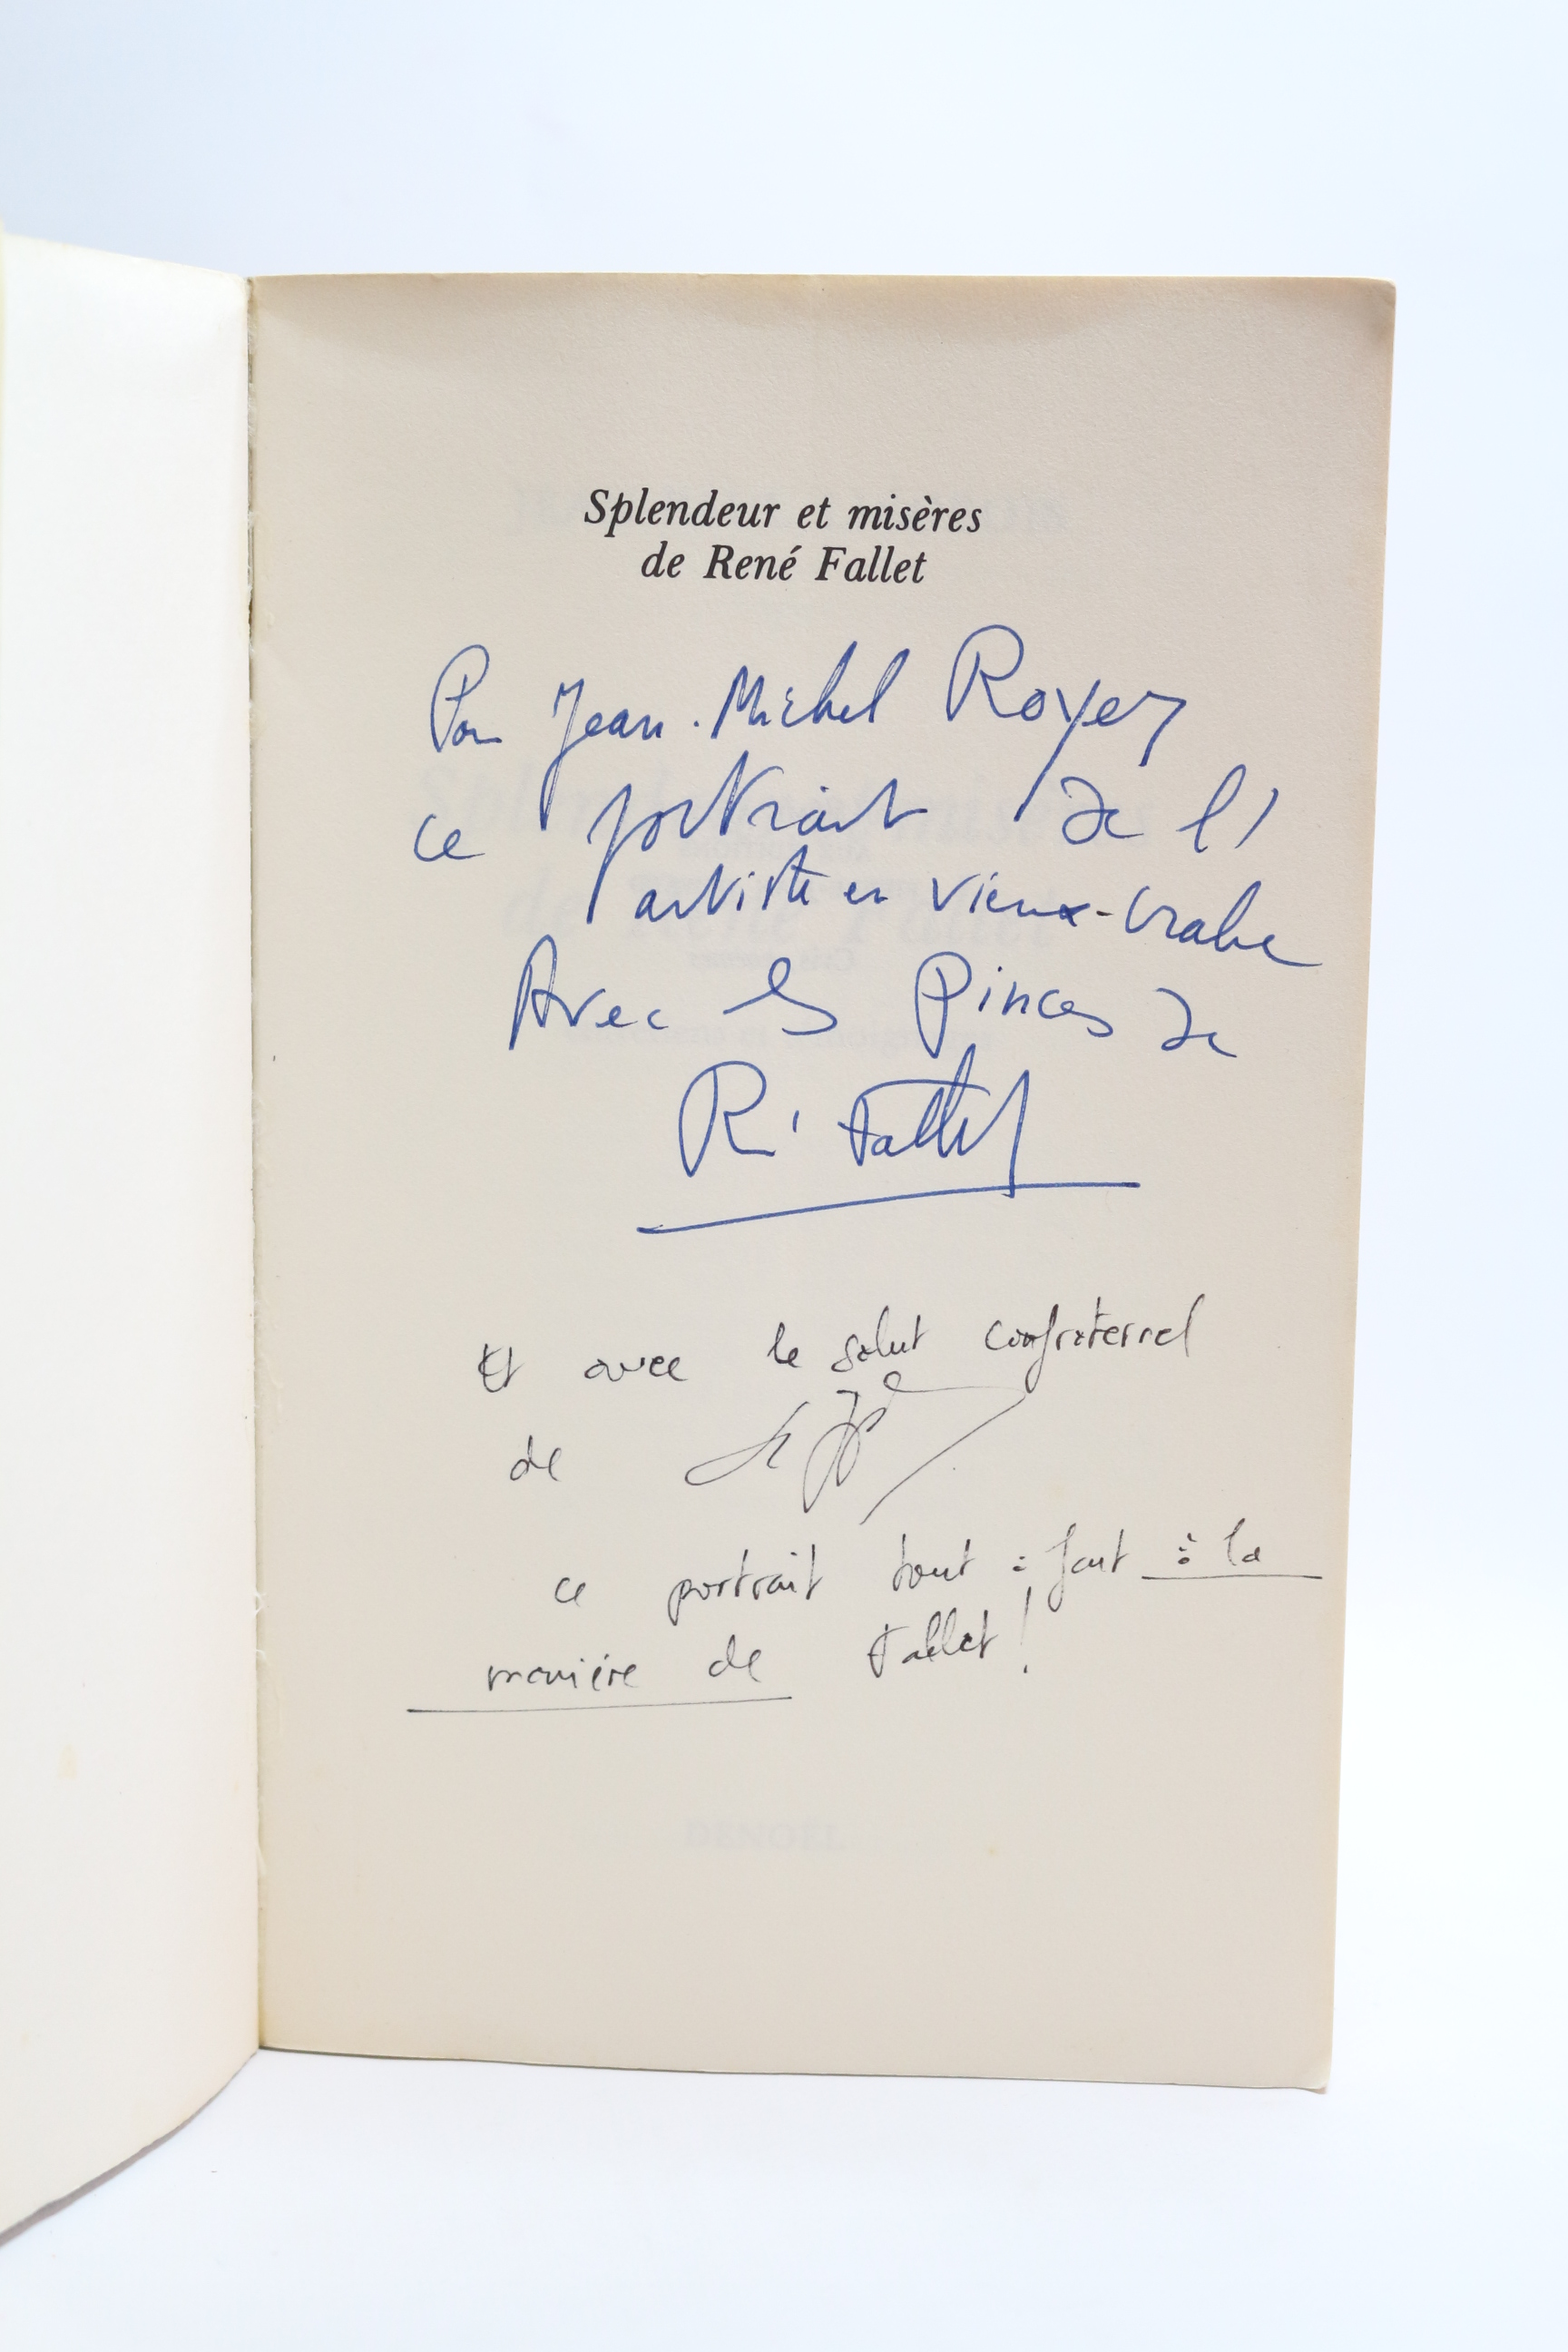 Splendeur et misères
de René Fallet
Pour Jean-Michel Royer
ce portrait de l'
artiste en vieux-crabe
Avec les pinces de
R' Fallet
Et avec le salut confraternel
de
ce portrait tout à fait à la
manière de Fallet !
DENOËL